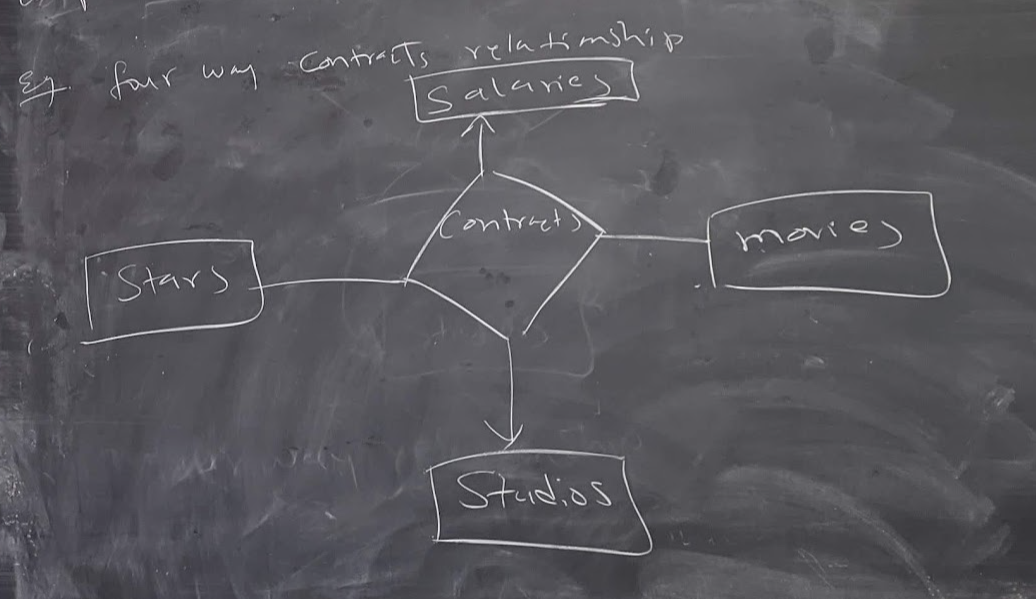 Eg. four way contracts relationship
Salaries
Contracts
Stars
movies
Studios